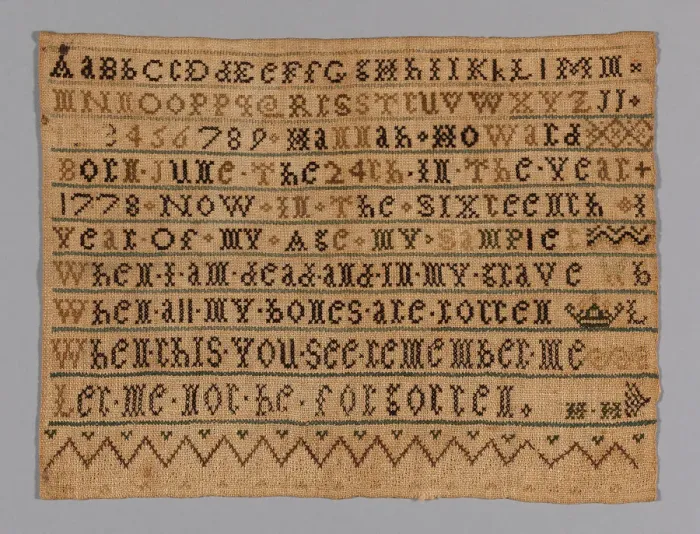 A a B b C c D d E e F f G g H h I I K k L l M m
M N n O o P p q Q R r S s T t U V W X Y Z J J
1 2 3 4 5 6 7 8 9 Hannah Howard
Born June The 24th In The Year
1778 Now In The Sixteenth
Year Of My Age My Sample
When I am dead and In My Grave
When all My bones are rotten
When this You see remember me
Let me not be forgotten. H H